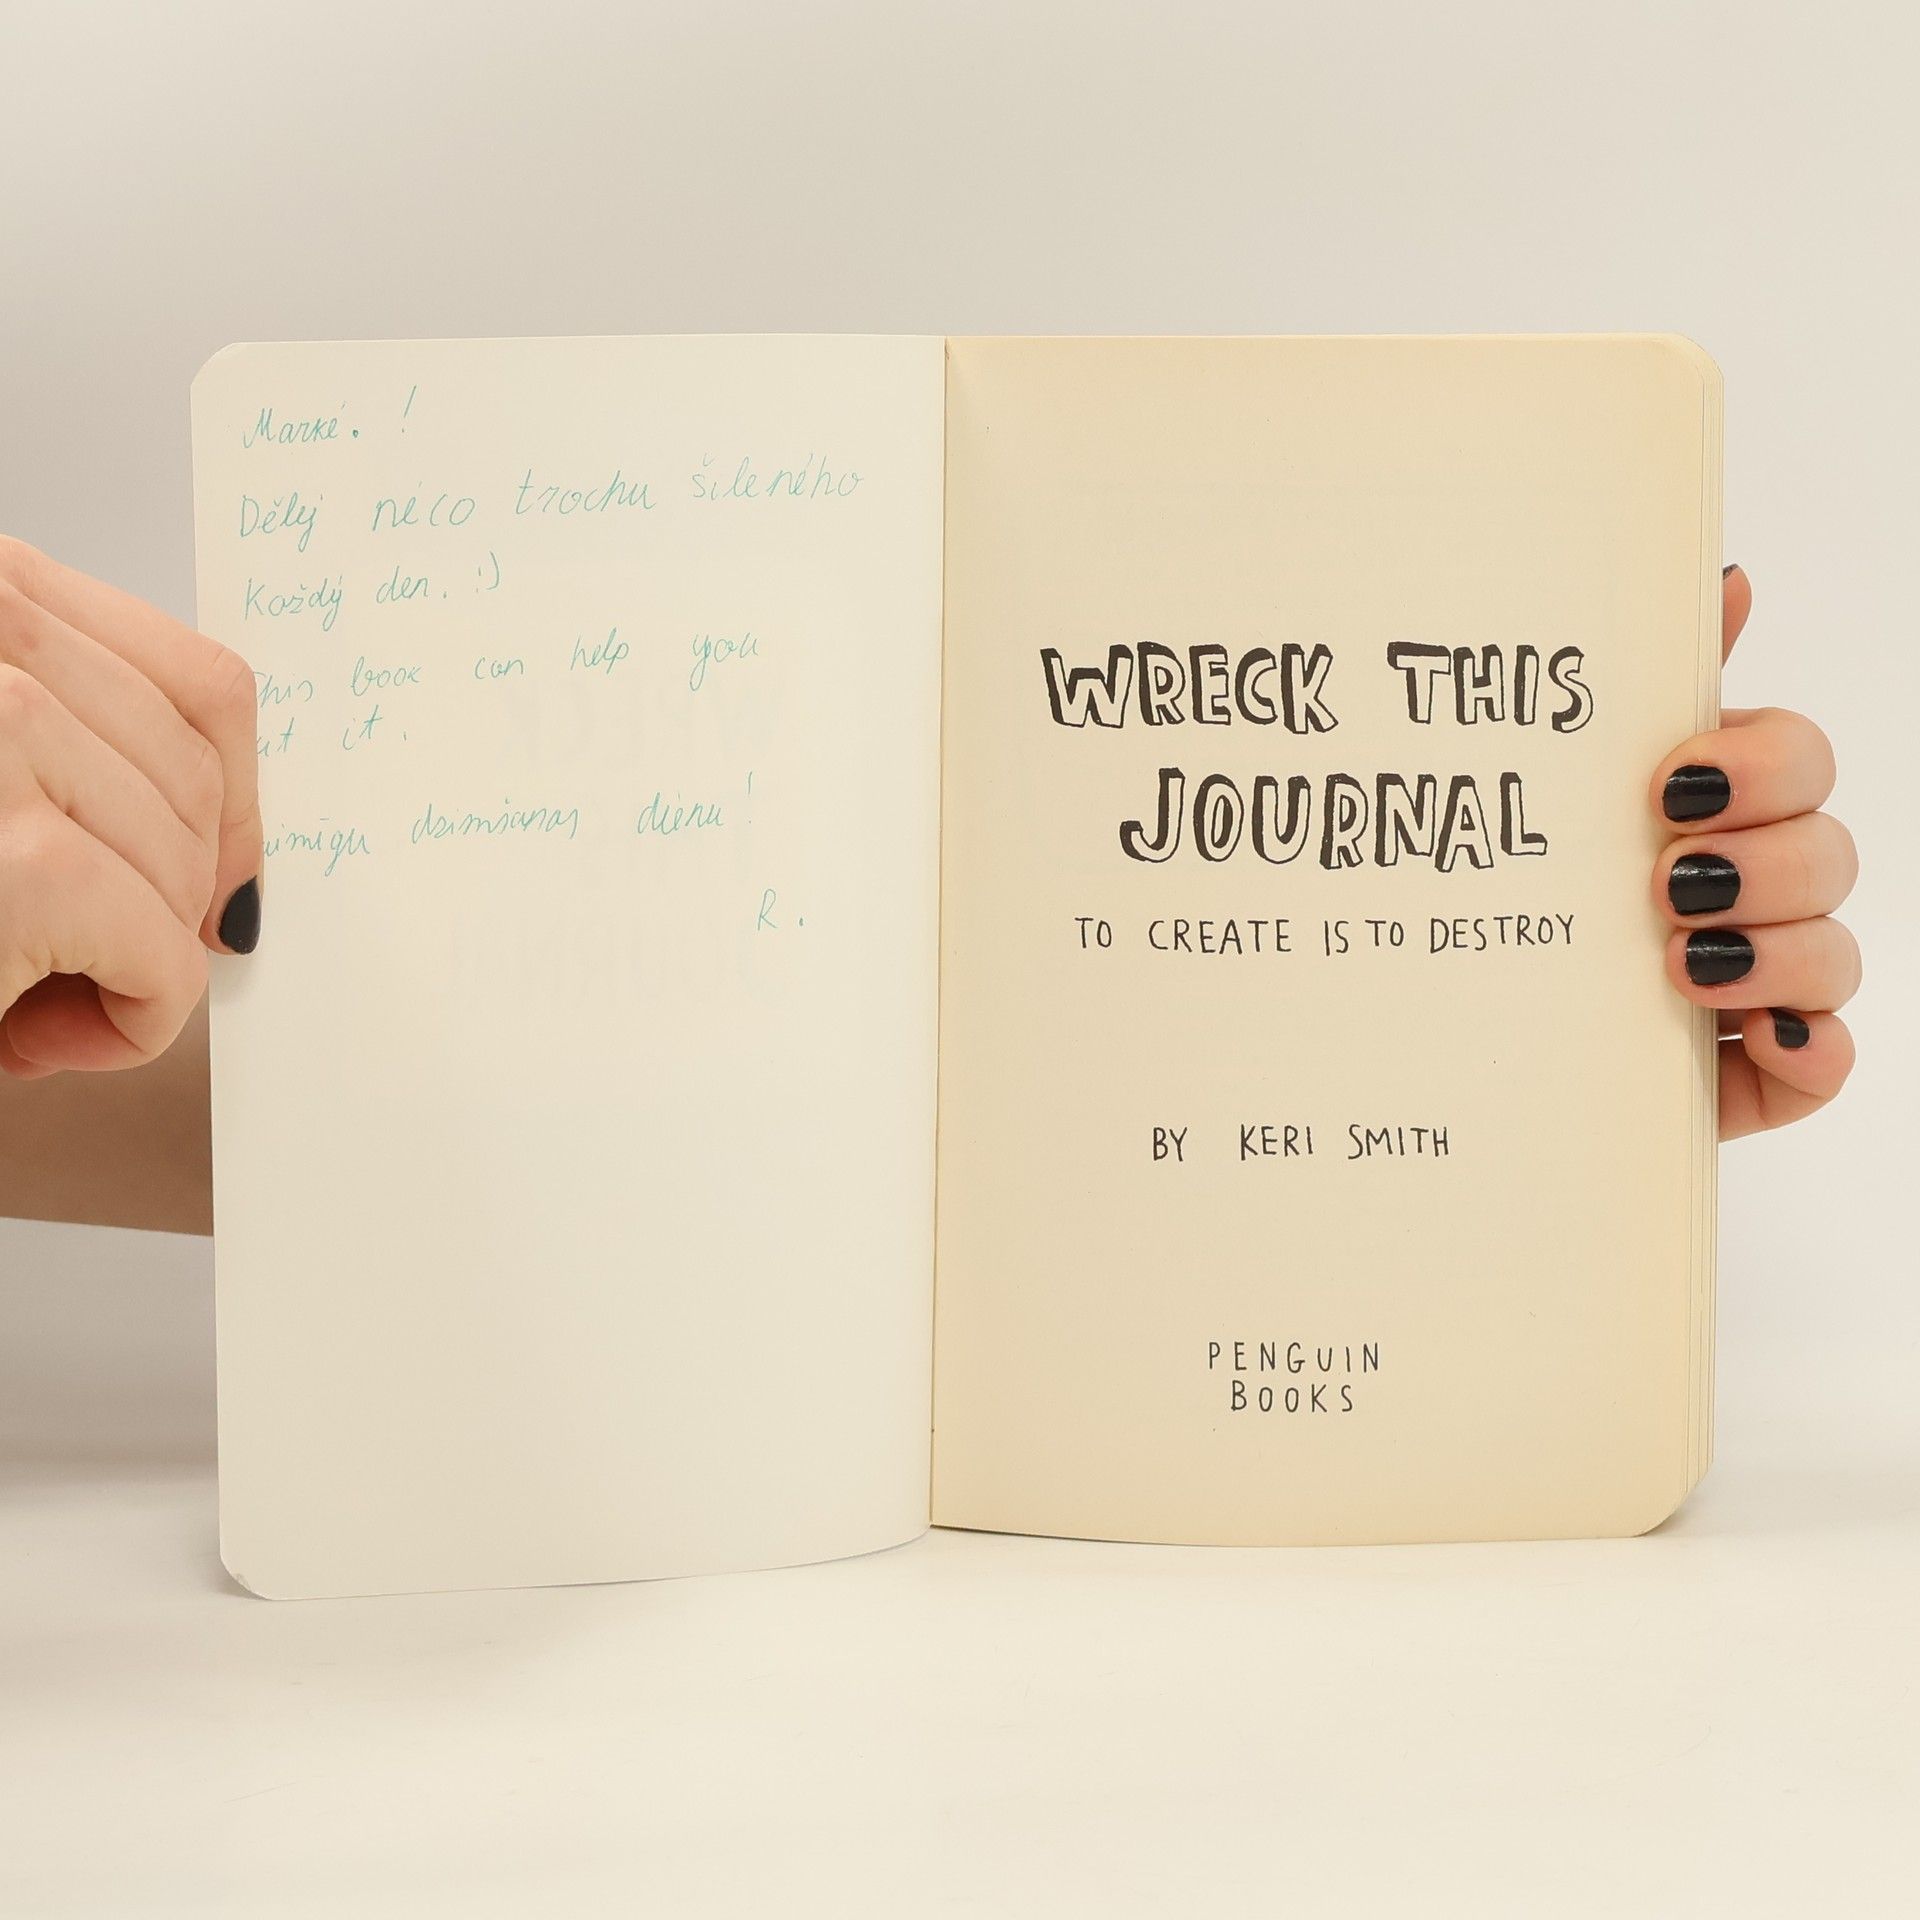 Marké. !
Dělej něco trochu šíleného
Každý den. :)
This book can help you
at it.
dzimšanas dienu!
R.
WRECK THIS
JOURNAL
TO CREATE IS TO DESTROY
BY KERI SMITH
PENGUIN
BOOKS